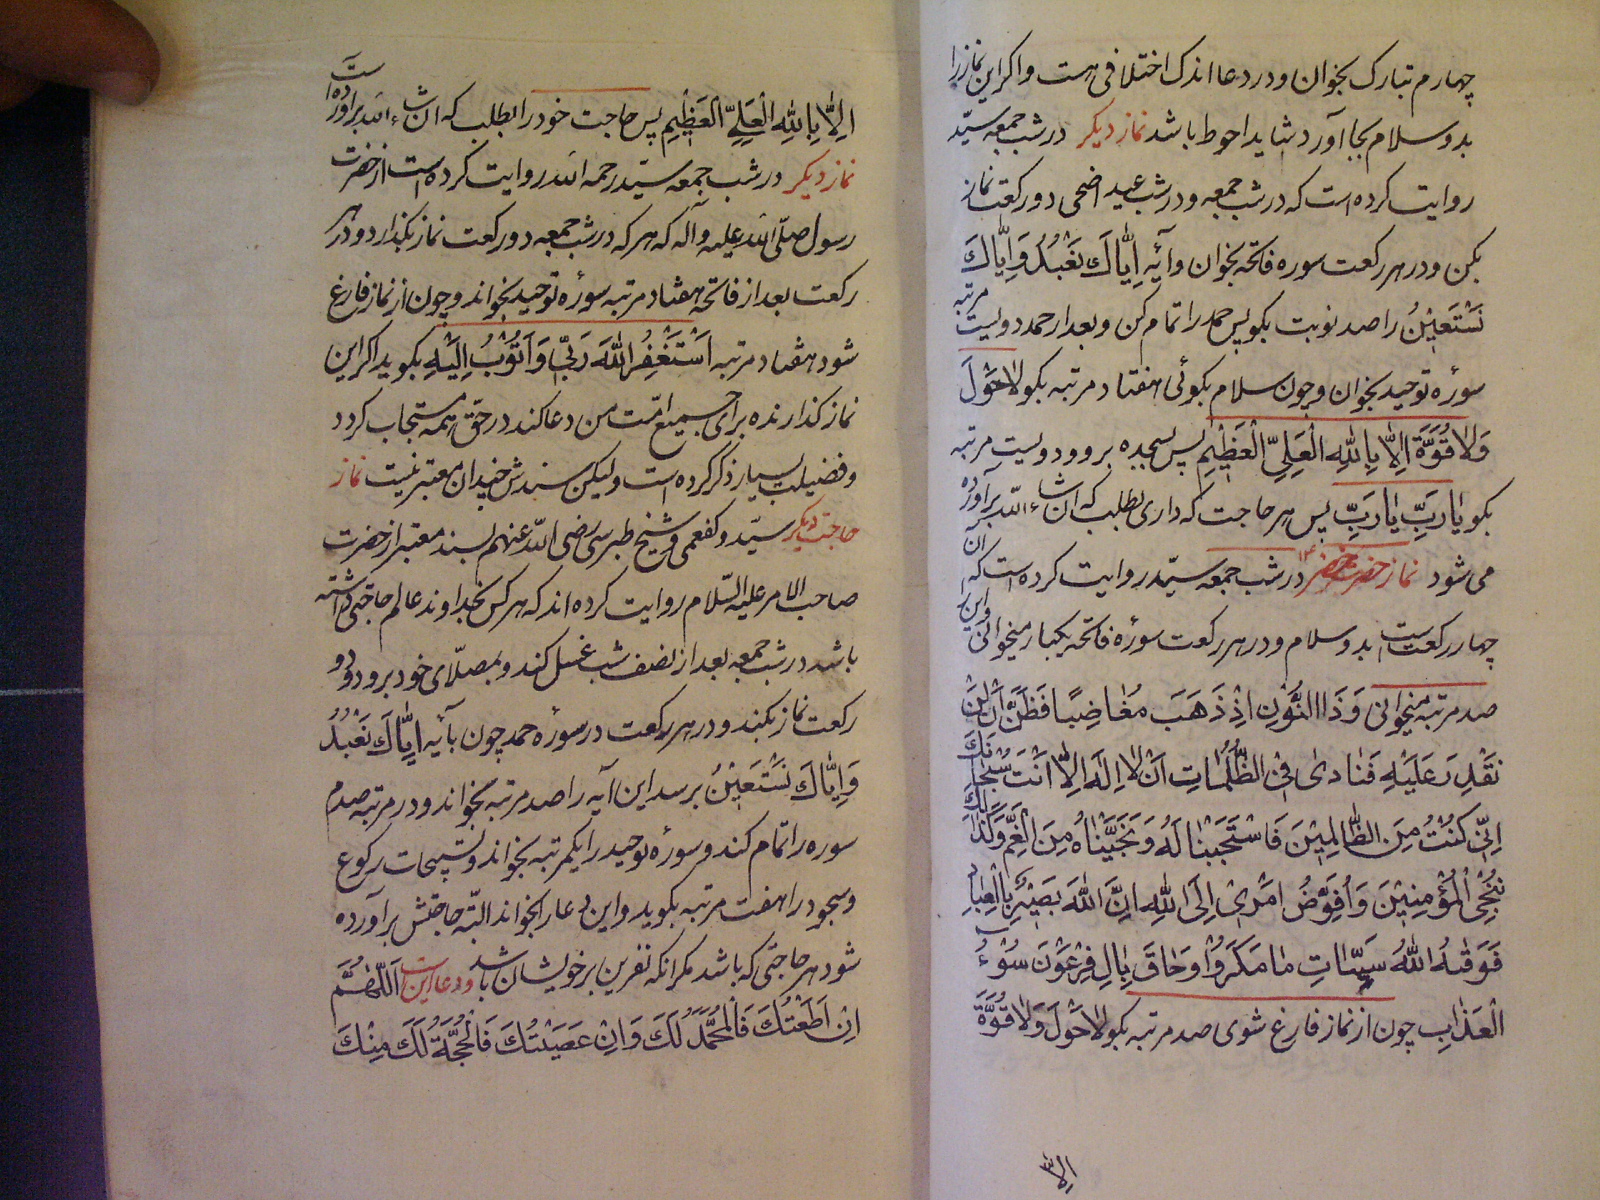 چهارم تبارک بخوان و در دعا اندک اختلافی هست و اکر این نماز را
بدو سلام بجا آورد شاید احوط باشد نماز دیکر در شب جمعه سیّد
روایت کرده است که در شب جمعه و در شب عید اضحی دو رکعت نماز
بکن و در هر رکعت سوره فاتحه بخوان و آیٔه اِیّاکَ نَعْبُدُ وَ اِیّاکَ
نَسْتَعِیْنُ را صد نوبت بکو پس حمد را تمام کن و بعد از حمد دویست مرتبه
سورهٔ توحید بخوان و چون سلام بکوئی هفتاد مرتبه بکو لاحَوْلَ
وَلا قُوَّةَ اِلّا بِاللّٰهِ الْعَلِیِّ الْعَظِیْمِ پس بسجده برو و دویست مرتبه
بکو یا رَبِّ یا رَبِّ پس هر حاجت که داری بطلب که ان شاء اللّه برآورده
می شود نماز حضرت خضر ع در شب جمعه سیّد روایت کرده است که ان
چهار رکعت است بدو سلام و در هر رکعت سورهٔ فاتحه یکبار میخوانی و این
صد مرتبه میخوانی وَ ذَا النُّوْنِ اِذْ ذَهَبَ مُغاضِبًا فَظَنَّ اَنْ لَنْ
نَقْدِرَ عَلَیْهِ فَنادیٰ فِی الظُّلُماتِ اَنْ لا اِلٰهَ اِلّا اَنْتَ سُبْحانَکَ
اِنّی کُنْتُ مِنَ الظّالِمِیْنَ فَاسْتَجَبْنا لَهُ وَ نَجَّیْناهُ مِنَ الْغَمِّ وَ کَذٰلِکَ
نُنْجِی الْمُؤْمِنِیْنَ وَ اُفَوِّضُ اَمْرِیْ اِلَی اللّٰهِ اِنَّ اللّٰهَ بَصِیْرٌ بِالْعِبادِ
فَوَقٰهُ اللّٰهُ سَیِّئاتِ ما مَکَرُوْا وَ حاقَ بِاٰلِ فِرْعَوْنَ سُوْءُ
الْعَذابِ چون از نماز فارغ شوی صد مرتبه بکو لاحَوْلَ وَلا قُوَّةَ
اِلّا
اِلّا بِاللّٰهِ الْعَلِیِّ الْعَظِیْمِ پس حاجت خود را بطلب که ان شاء اللّه برآورده است
نماز دیکر در شب جمعه سیّد رحمه اللّه روایت کرده است از حضرت
رسول صلّی اللّه علیه وآله که هر که در شب جمعه دو رکعت نماز بکذارد و در هر
رکعت بعد از فاتحه هفتاد مرتبه سورهٔ توحید بخواند و چون از نماز فارغ
شود هفتاد مرتبه اَسْتَغْفِرُ اللّٰهَ رَبّی وَ اَتُوْبُ اِلَیْهِ بکوید اکر این
نماز کذارنده برای جمیع امّت من دعا کند در حق همه مستجاب کردد
و فضیلت بسیار ذکر کرده است ولیکن سندش چندان معتبر نیست نماز
حاجت دیکر سیّد و کفعمی و شیخ طبرسی رضی اللّه عنهم بسند معتبر از حضرت
صاحب الامر علیه السّلام روایت کرده اند که هر کس بخداوند عالم حاجتی داشته
باشد در شب جمعه بعد از نصف شب غسل کند و بمصلّای خود برود و دو
رکعت نماز بکند و در هر رکعت در سورهٔ حمد چون بآیٔه اِیّاکَ نَعْبُدُ
وَ اِیّاکَ نَسْتَعِیْنُ برسد این آیه را صد مرتبه بخواند و در مرتبه صدم
سوره را تمام کند و سورهٔ توحید را یکمرتبه بخواند و تسبیحات رکوع
و سجود را هفت مرتبه بکوید و این دعا را بخواند البتّه حاجتش برآورده
شود هر حاجتی که باشد مکر انکه نفرین بر خویشان باشد و دعا این است اَللّٰهُمَّ
اِنْ اَطَعْتُکَ فَالْمَحْمَدَةُ لَکَ وَ اِنْ عَصَیْتُکَ فَالْحُجَّةُ لَکَ مِنْکَ